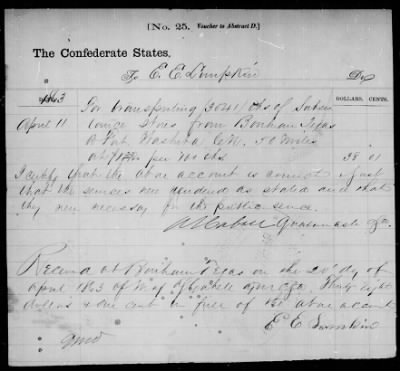 [No. 25. Voucher to Abstract D.]
The Confederate States,
To E. E. Lumpkin Dr
1863 DOLLARS. CENTS.
April 11 For transporting 3041 lbs of Subsis
tence Stores from Bonham Texas
to Fort Washita C.N. 50 miles
at per 100 lbs 38 01
I certify that the above account is correct & just
that the services were rendered as stated and that
they were necessary for the public service
Quarmash
Received at Bonham Texas on the 20 day of
April 1863 of Thirty eight
dollars & one cent in full of the above account
E E Lumpkin